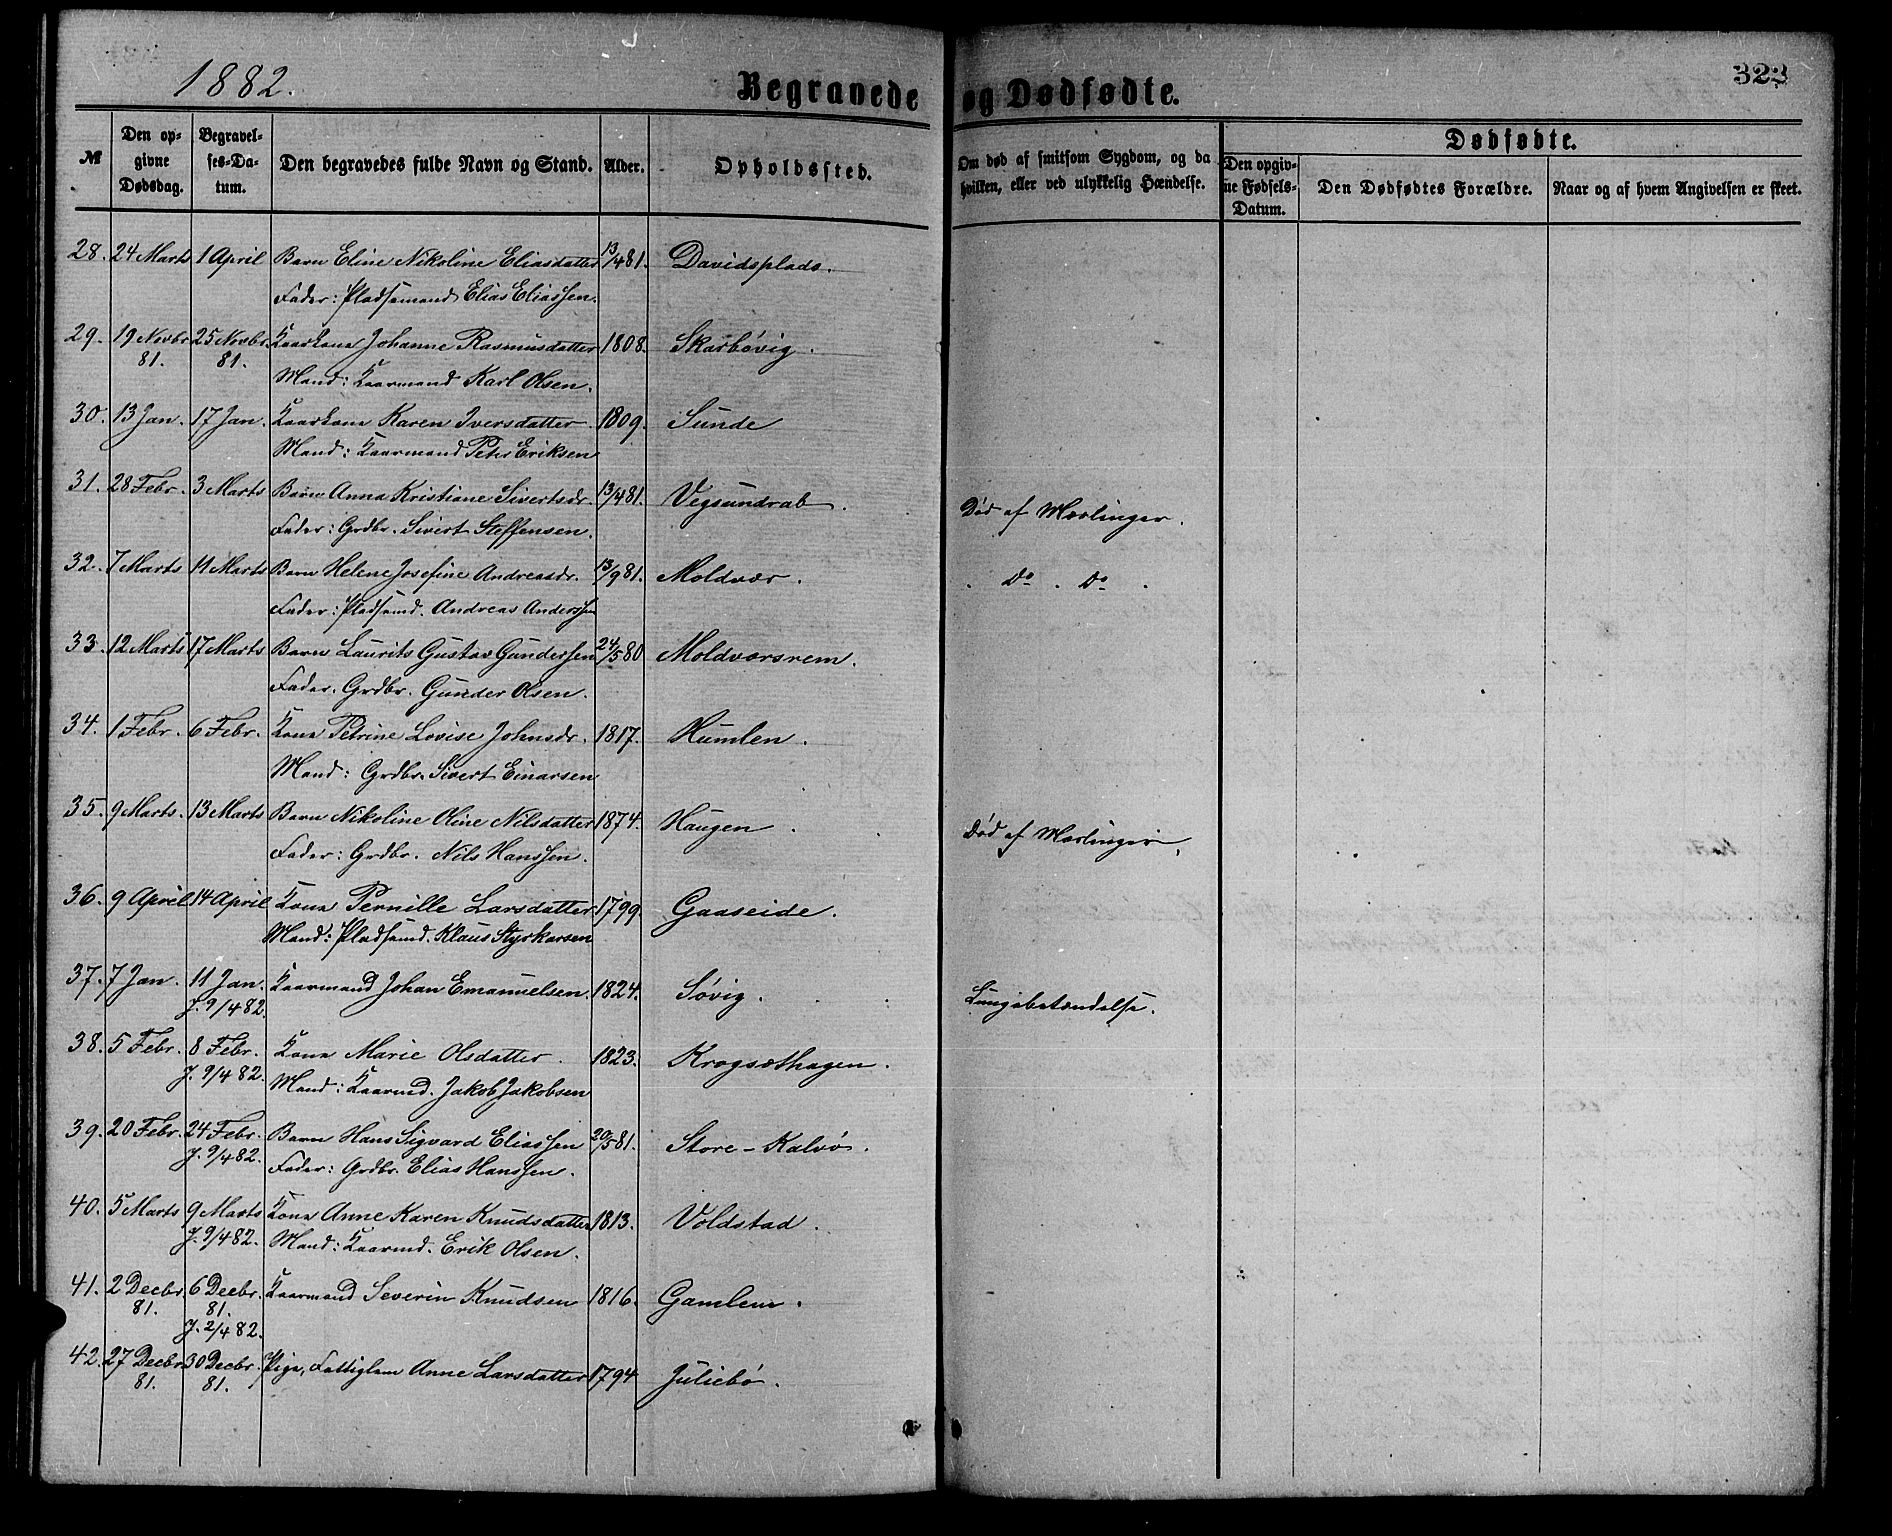 1882.
Begravede og Dødfødte.
323
№
Den opgivne Dødsdag.
Begravelses-Datum.
Den begravedes fulde Navn og Stand.
Alder.
Opholdssted.
Om død af smitsom Sygdom, og da hvilken, eller ved ulykkelig Hændelse.
Dødfødte.
Den opgivne Fødsels-Datum.
Den Dødfødtes Forældre.
Naar og af hvem Angivelsen er skeet.
28. 24 Marts 1 April Barn Eline Nikoline Eliasdatter 13/4 81. Davidsplads.
Fader: Pladsemand Elias Eliassen.
29. 19 Novbr 81. 25 Novbr. 81. Kaarkone Johanne Rasmusdatter 1808. Skarbøvig.
Mand: Kaarmand Karl Olsen.
30. 13 Jan. 17 Jan. Kaarkone Karen Iversdatter 1809. Sunde
Mand: Kaarmand Peter Eriksen
31. 28 Febr. 3 Marts Barn Anna Kristiane Sivertsdr. 13/4 81. Vegsundrab. Død af Mæslinger.
Fader: Grdbr. Sivert Steffensen.
32. 7 Marts 11 Marts Barn Helene Josefine Andreasdr. 13/9 81. Moldvær. Do. Do.
Fader: Pladsemd. Andreas Anderssen
33. 12 Marts 17 Marts Barn Laurits Gustav Gunderssen 24/5 80 Moldværsrem.
Fader. Grdbr. Gunder Olsen.
34. 1 Febr. 6 Febr. Kone Petrine Lovise Johnsdr. 1817. Humlen.
Mand: Grdbr. Sivert Einarsen
35. 9 Marts. 13 Marts Barn Nikoline Oline Nilsdatter 1874. Haugen. Død af Mæslinger.
Fader: Grdbr. Nils Hanssen.
36. 9 April 14 April Kone Pernille Larsdatter 1799. Gaaseide.
Mand: Pladsemd. Klaus Styrkarsen
37. 7 Jan. 11 Jan. Kaarmand Johan Emanuelsen. 1824. Søvig. Lungebetændelse.
J. 9/4 82.
38. 5 Febr. 8 Febr. Kone Marie Olsdatter. 1823. Krogsæthagen.
J. 9/4 82. Mand: Kaarmd. Jakob Jakobsen
39. 20 Febr. 24 Febr. Barn Hans Sigvard Eliassen 20/5 81. Store-Kalvø.
J. 9/4 82. Fader: Grdbr. Elias Hanssen.
40. 5 Marts 9 Marts Kone Anne Karen Knudsdatter 1813. Voldstad.
J. 9/4 82. Mand: Kaarmd. Erik Olsen.
41. 2 Decbr. 81. 6 Decbr. 81. Kaarmand Severin Knudsen 1816. Gamlem.
J. 2/4 82.
42. 27 Decbr 81. 30 Decbr. 81. Pige, Fattiglem Anne Larsdatter 1794 Juliebø.